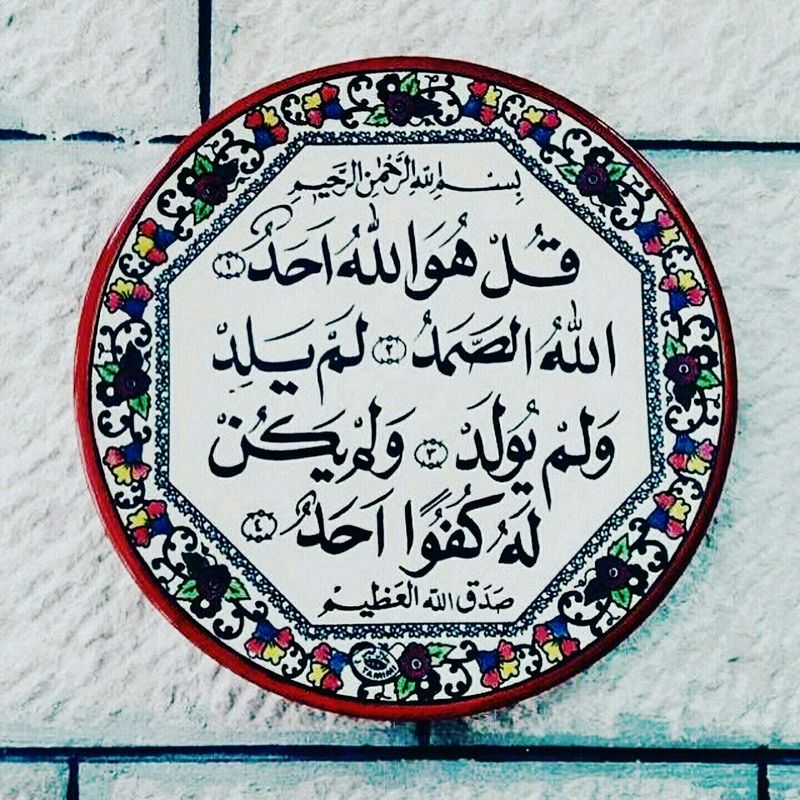 بِسْمِ اللهِ الرَّحْمٰنِ الرَّحِيمِ
قُلْ هُوَ اللهُ اَحَدٌ ١
اللهُ الصَّمَدُ ٢ لَمْ يَلِدْ
وَلَمْ يُولَدْ ٣ وَلَمْ يَكُنْ
لَهُ كُفُوًا اَحَدٌ ٤
صَدَقَ اللهُ الْعَظِيمْ
TAMIMI